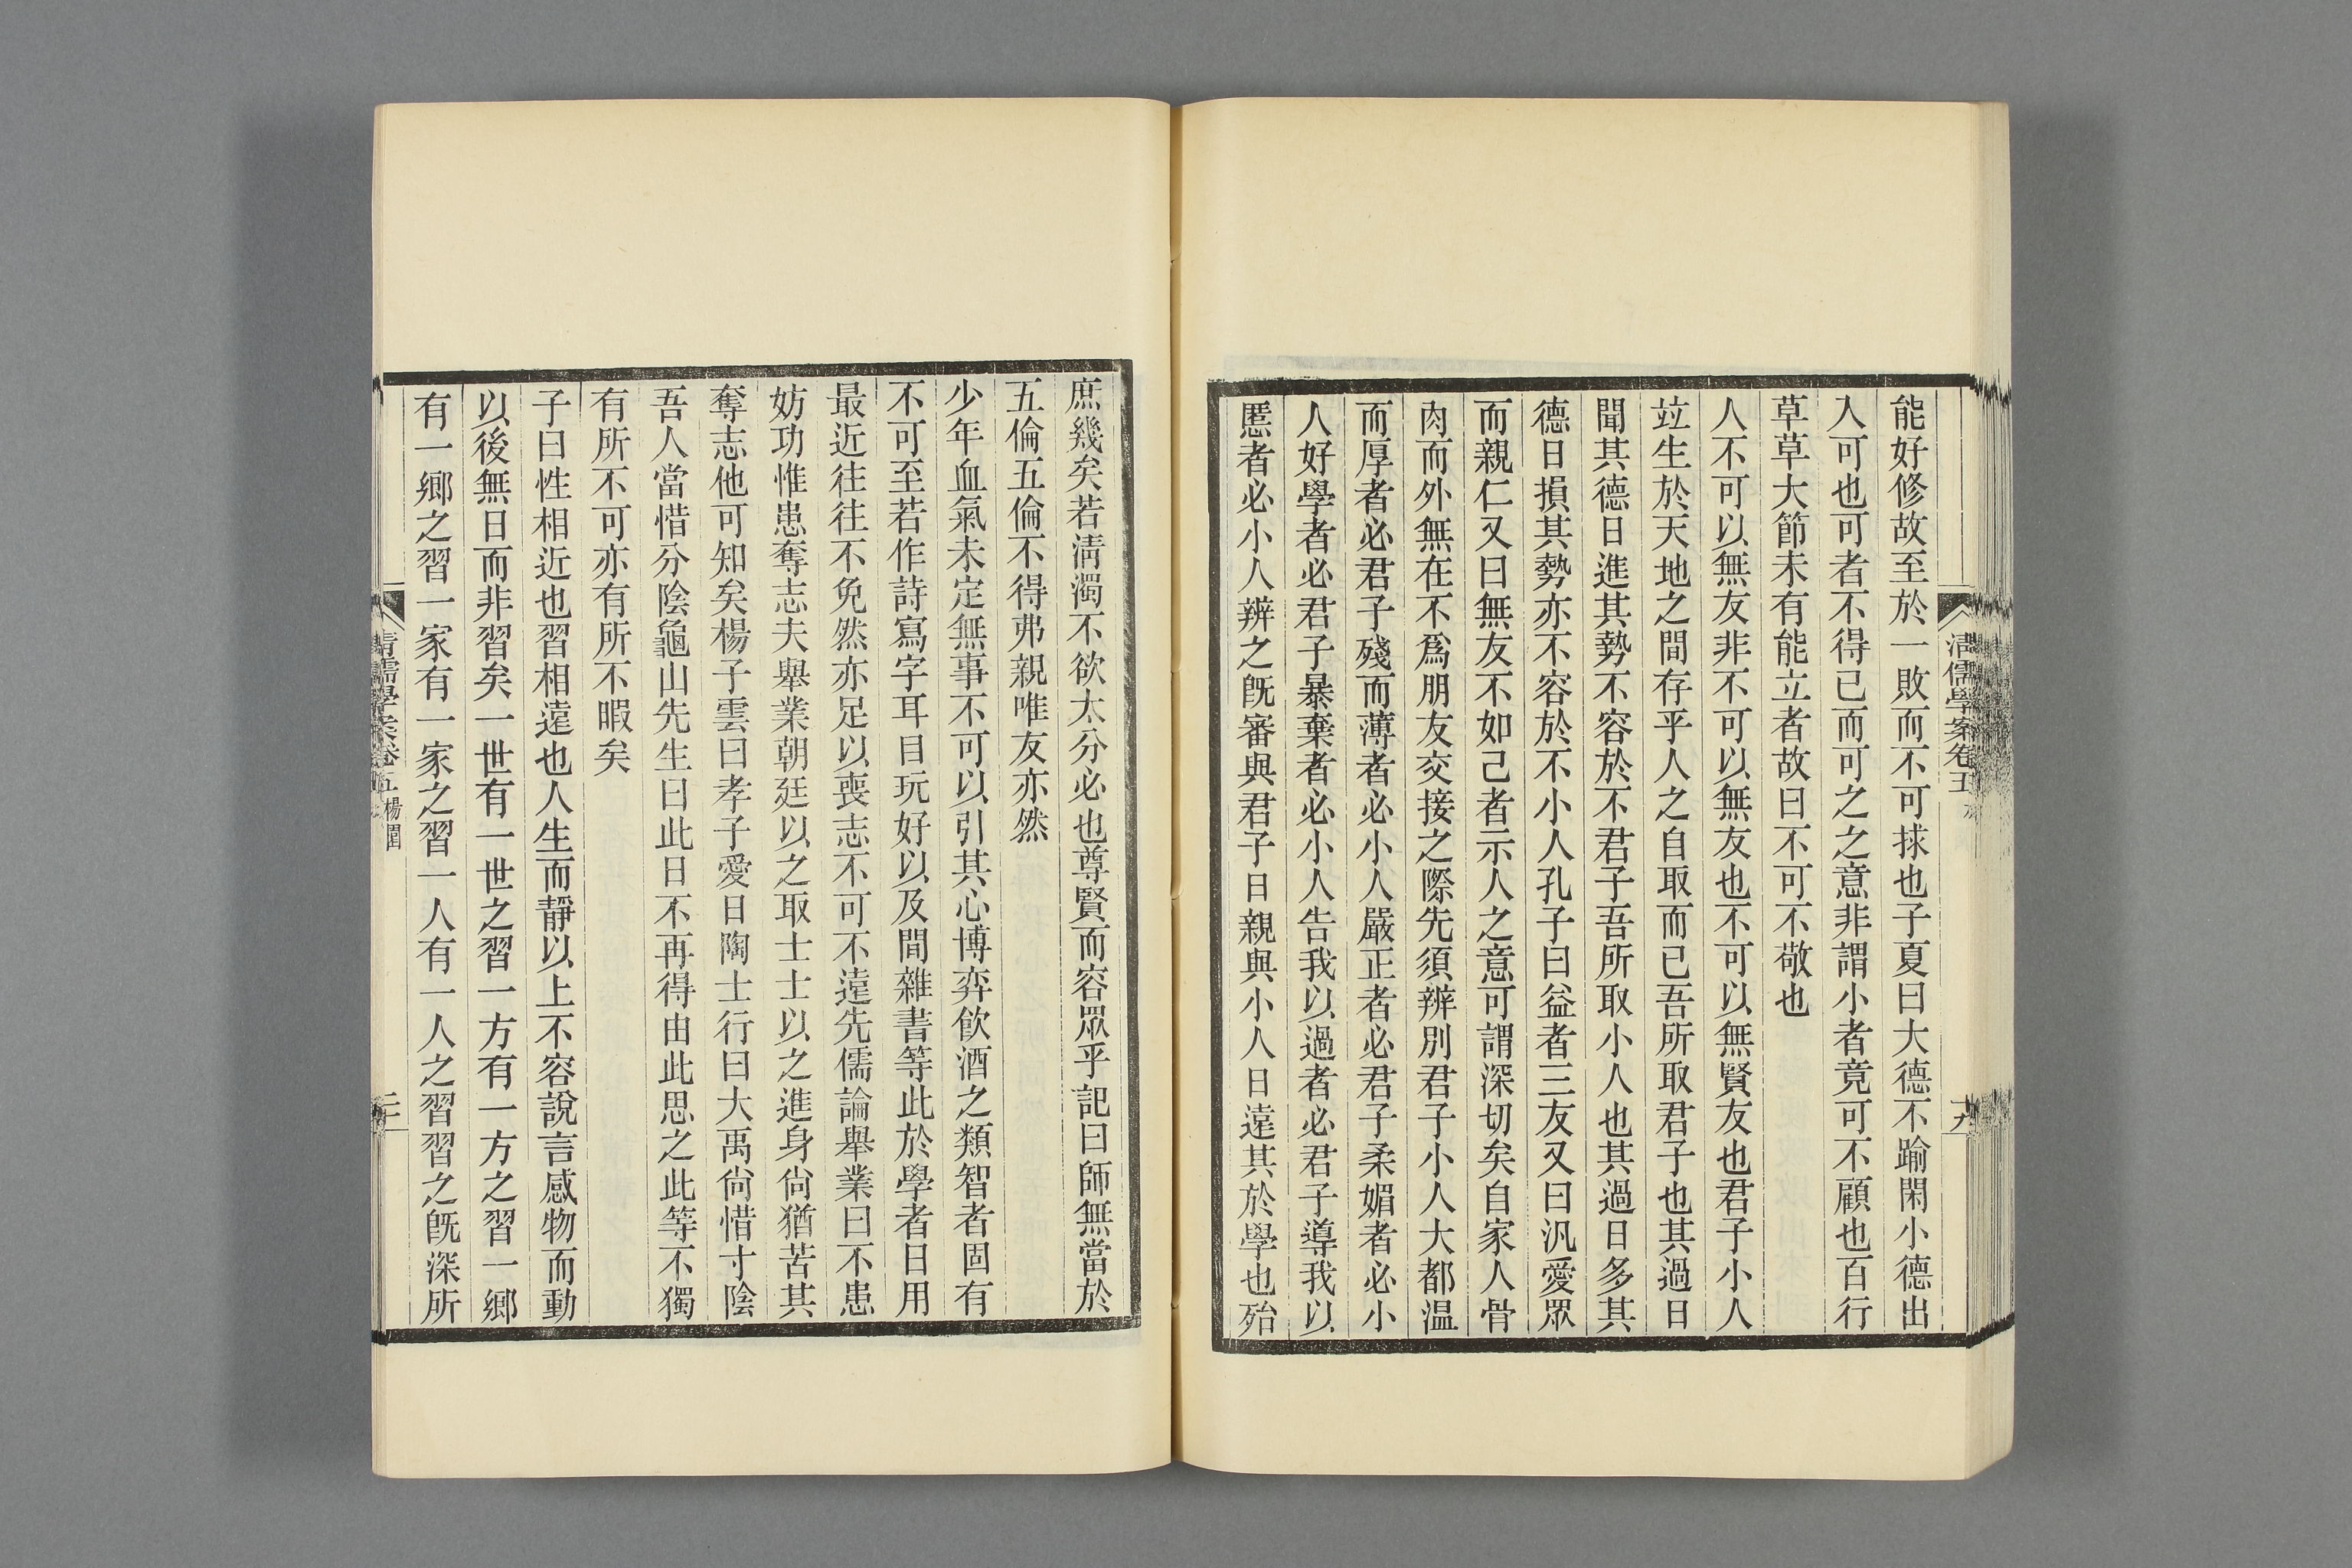 能好修故至於一敗而不可捄也子夏曰大德不踰閑小德出
入可也可者不得已而可之之意非謂小者竟可不顧也百行
草草大節未有能立者故曰不可不敬也
人不可以無友非不可以無友也不可以無賢友也君子小人
竝生於天地之間存乎人之自取而已吾所取君子也其過日
聞其德日進其勢不容於不君子吾所取小人也其過日多其
德日損其勢亦不容於不小人孔子曰益者三友又曰汎愛眾
而親仁又曰無友不如己者示人之意可謂深切矣自家人骨
肉而外無在不爲朋友交接之際先須辨別君子小人大都温
而厚者必君子殘而薄者必小人嚴正者必君子柔媚者必小
人好學者必君子暴棄者必小人告我以過者必君子導我以
慝者必小人辨之旣審與君子日親與小人日遠其於學也殆
清儒學案卷五
庶幾矣若清濁不欲太分必也尊賢而容眾乎記曰師無當於
五倫五倫不得弗親唯友亦然
少年血氣未定無事不可以引其心博弈飮酒之類智者固有
不可至若作詩寫字耳目玩好以及間雜書等此於學者日用
最近往往不免然亦足以喪志不可不遠先儒論舉業曰不患
妨功惟患奪志夫舉業朝廷以之取士士以之進身尙猶苦其
奪志他可知矣楊子雲曰孝子愛日陶士行曰大禹尙惜寸陰
吾人當惜分陰龜山先生曰此日不再得由此思之此等不獨
有所不可亦有所不暇矣
子曰性相近也習相遠也人生而靜以上不容說言感物而動
以後無日而非習矣一世有一世之習一方有一方之習一鄉
有一鄉之習一家有一家之習一人有一人之習習之旣深所
清儒學案卷五 楊園